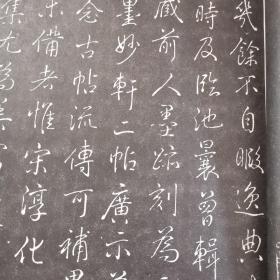 幾餘不自暇逸典
時及臨池曩曾輯
藏前人墨跡刻為三
墨妙軒二帖廣示
念古帖流傳可補
未備者惟宋淳化
集尤為美